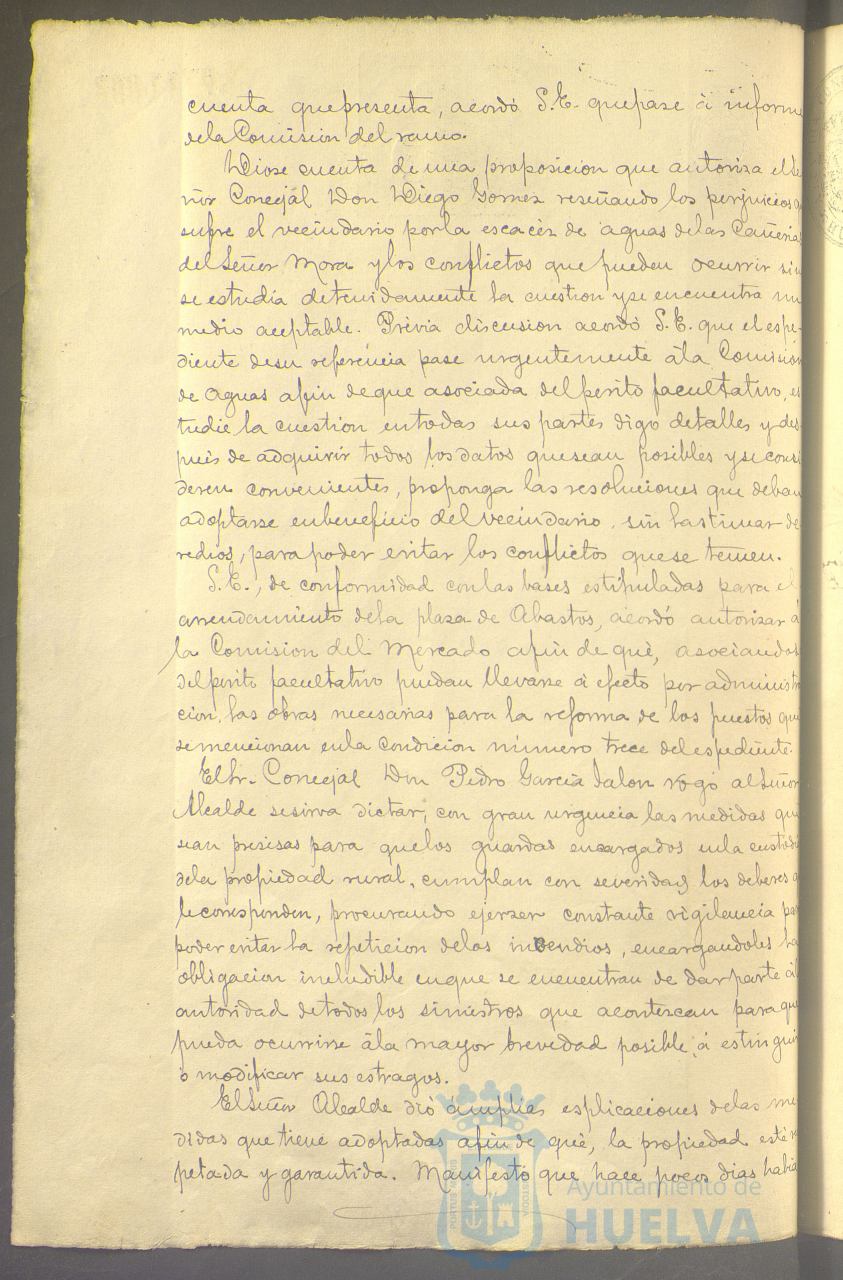 cuenta que presenta, acordó S.E. que pase á informe
de la Comision del ramo.
Diose cuenta de una proposicion que autoriza el Se
ñor Concejál Don Diego Gomez reseñando los perjuicios q
sufre el vecindario por la escacéz de aguas de las Cañerias
del Señor Mora y los conflictos que pueden ocurrir sin
se estudia detenidamente la cuestion y se encuentra un
medio aceptable. Prévia discusion acordó S.E. que el espe-
diente de su referencia pase urgentemente á la Comision
de Aguas afin de que asociada del perito facultativo, es
tudie la cuestion en todas sus partes digo detalles y des
pués de adquirir todos los datos que sean posibles y se consi
deren convenientes, proponga las resoluciones que deban
adoptarse en beneficio del vecindario, sin lastimar de
rechos, para poder evitar los conflictos que se temen.
S.E., de conformidad con las bases estipuladas para el
arrendamiento de la plaza de Abastos, acordó autorizar á
la Comision del Mercado afin de qué, asociandos
del perito facultativo puedan llevarse á efecto por administra
cion, las obras necesarias para la reforma de los puestos que
se mencionan en la condicion número trece del espediente.
El Sr. Concejal Don Pedro Garcia Jalon rogó al Señor
Alcalde se sirva dictar, con gran urgencia las medidas que
sean precisas para que los guardas encargados en la custodi
de la propiedad rural, cumplan con severidad los deberes q
le corresponden, procurando ejerser constante vigilencia par
poder evitar la repeticion de los incendios, encargandoles la
obligacion ineludible en que se encuentran de dar parte á l
autoridad de todos los sinistros que acontescan para que
pueda ocurrirse á la mayor brevedad posible, á estinguir
ó modificar sus estragos.
El Señor Alcalde dió ámplias esplicaciones de las me
didas que tiene adoptadas afin de qué, la propiedad esté r
petada y garantida. Manifestó que hace pocos dias habia
Ayuntamiento de
HUELVA